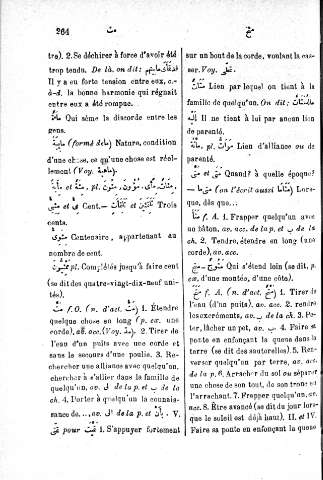 264
مت
متح
tre). 2. Se déchirer à force d'avoir été
trop tendu. De là, on dit:
il y a forte tension entre eux, c.-
à-d. la bonne harmonie qui régnait
entre eux a été rompue.
Qui sème la discorde entre les
gens.
(formé de) Nature, condition
d'une chose, ce qu'une chose est réel-
lement (Voy.
مائة et
et Cent. — Trois
cents.
Centenaire, appartenant au
nombre de cent.
pl. Complétés jusqu'à faire cent
(se dit des quatre-vingt-dix-neuf uni-
tés).
f. O. (n. d'act. 1. Étendre
quelque chose en long (p. ex. une
corde), ac. acc. (Voy. 2. Tirer de
l'eau d'un puits avec une corde et
sans le secours d'une poulie. 3. Re-
chercher une alliance avec quelqu'un,
chercher à s'allier dans la famille de
quelqu'un, av. ل de la p. et ب de la
ch. 4. Porter à quelqu'un la connais-
sance de..., av. ل de la p. et V.
pour 1. S'appuyer fortement
sur un bout de la corde, voulant la cas-
ser. Voy.
Lien par lequel on tient à la
famille de quelqu'un. On dit:
Il ne tient à lui par aucun lien
de parenté.
pl. Lien d'alliance ou de
parenté.
متى Quand? à quelle époque?
— (on l'écrit aussi Lors-
que, dès que...
f. A. 1. Frapper quelqu'un avec
un bâton, av. acc. de la p. et ب de la
ch. 2. Tendre, étendre en long (une
corde), av. acc.
Qui s'étend loin (se dit, p.
ex. d'une montée, d'une côte).
f. A. (n. d'act. 1. Tirer de
l'eau (d'un puits), av. acc. 2. rendre
les excréments, av. ب de la ch. 3. Po-
ter, lâcher un pet, av. ب 4. Faire sa
ponte en enfonçant la queue dans la
terre (se dit des sauterelles). 5. Ren-
verser quelqu'un par terre, av. acc.
de la p. 6. Arracher du sol ou séparer
une chose de son tout, de son tronc en
l'arrachant. 7. Frapper quelqu'un, av.
acc. 8. Être avancé (se dit du jour lors-
que le soleil est déjà haut). II. et IV.
Faire sa ponte en enfonçant la queue